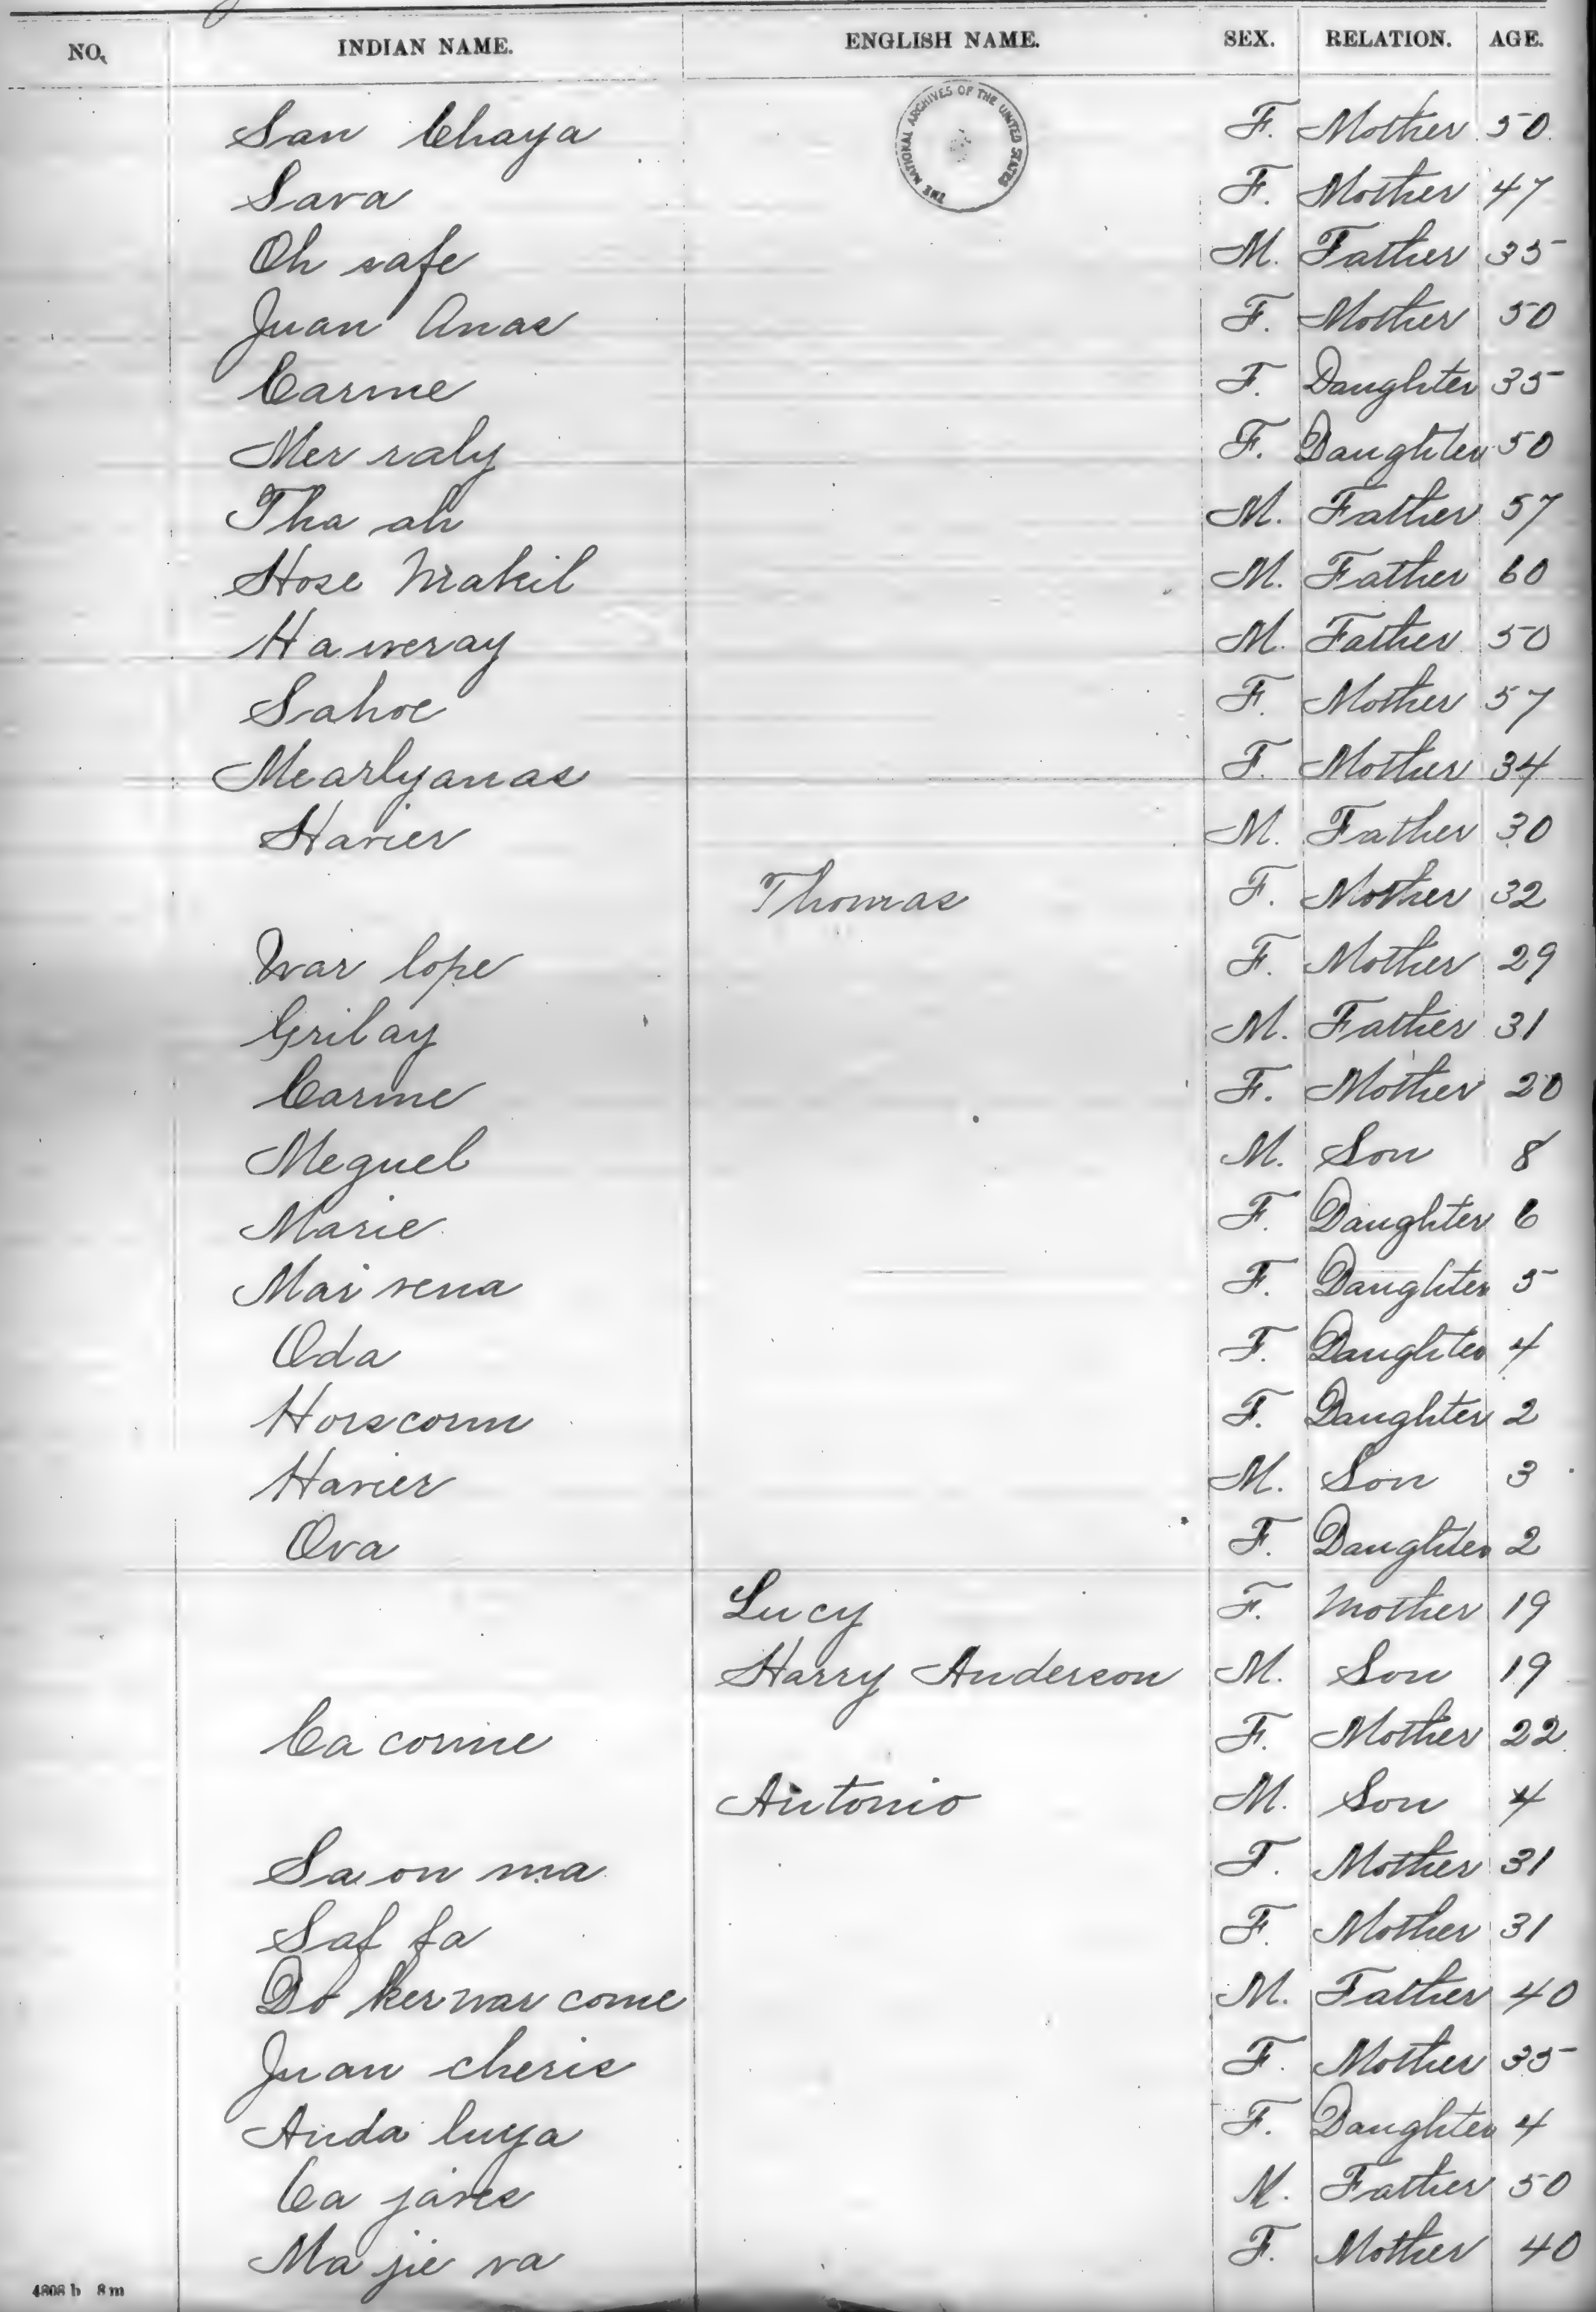 NO. INDIAN NAME. ENGLISH NAME. SEX. RELATION. AGE.
THE NATIONAL ARCHIVES OF THE UNITED STATES
San Chaya F. Mother 50
Sava F. Mother 47
Oh safe M. Father 35
Juan Anas F. Mother 50
Carme F. Daughter 35
Mer raly F. Daughter 50
Tha ah M. Father 57
Hose Makil M. Father 60
Ha weray M. Father 50
Sahoe F. Mother 57
Mearlyanas F. Mother 34
Havier M. Father 30
Thomas F. Mother 32
War lope F. Mother 29
Grilay M. Father 31
Carme F. Mother 20
Meguel M. Son 8
Marie F. Daughter 6
Mai vena F. Daughter 5
Oda F. Daughter 4
Horscorm F. Daughter 2
Havier M. Son 3
Ova F. Daughter 2
Lucy F. Mother 19
Harry Anderson M. Son 19
Ca corme F. Mother 22
Antonio M. Son 4
Sa on ma F. Mother 31
Saf fa F. Mother 31
Do ker war come M. Father 40
Juan cheris F. Mother 35
Anda luya F. Daughter 4
Ca javes M. Father 50
Ma jie va F. Mother 40
4808 b 8 m